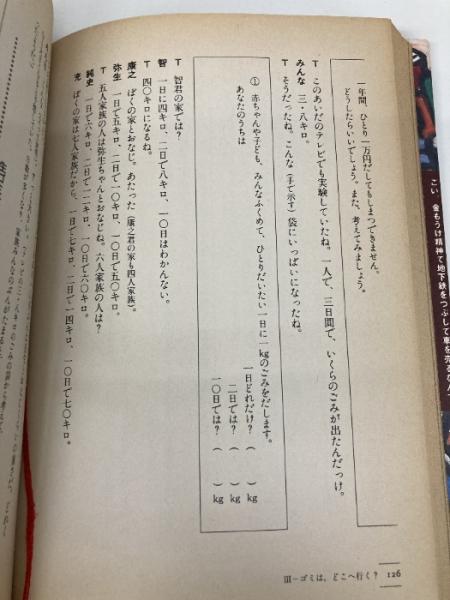 一年間、ひとり一万円だしてもしまつできません。
どうしたらいいでしょう。また、考えてみましょう。
T このあいだのテレビでも実験していたね。一人で、三日間で、いくらのごみが出たんだっけ。
みんな 三・八キロ。
T そうだったね。こんな(手で示す)袋にいっぱいになったね。
① 赤ちゃんや子ども、みんなふくめて、ひとりだいたい一日に一kgのごみをだします。
あなたのうちは
一日どれだけ?( )kg
二日では?( )kg
一〇日では?( )kg
T 智君の家では?
智 一日に四キロ、二日で八キロ、一〇日はわかんない。
T 四〇キロになるね。
康之 ぼくの家とおなじ。あたった(康之君の家も四人家族)。
弥生 一日で五キロ、二日で一〇キロ、一〇日で五〇キロ。
T 五人家族の人は弥生ちゃんとおなじね。六人家族の人は?
純史 一日で六キロ、二日で一二キロ、一〇日で六〇キロ。
充 ぼくの家は七人家族だから、一日で七キロ、二日で一四キロ、一〇日で七〇キロ。
III―ゴミは、どこへ行く? 126
こい 金もうけ精神で地下鉄をつぶして車を売る